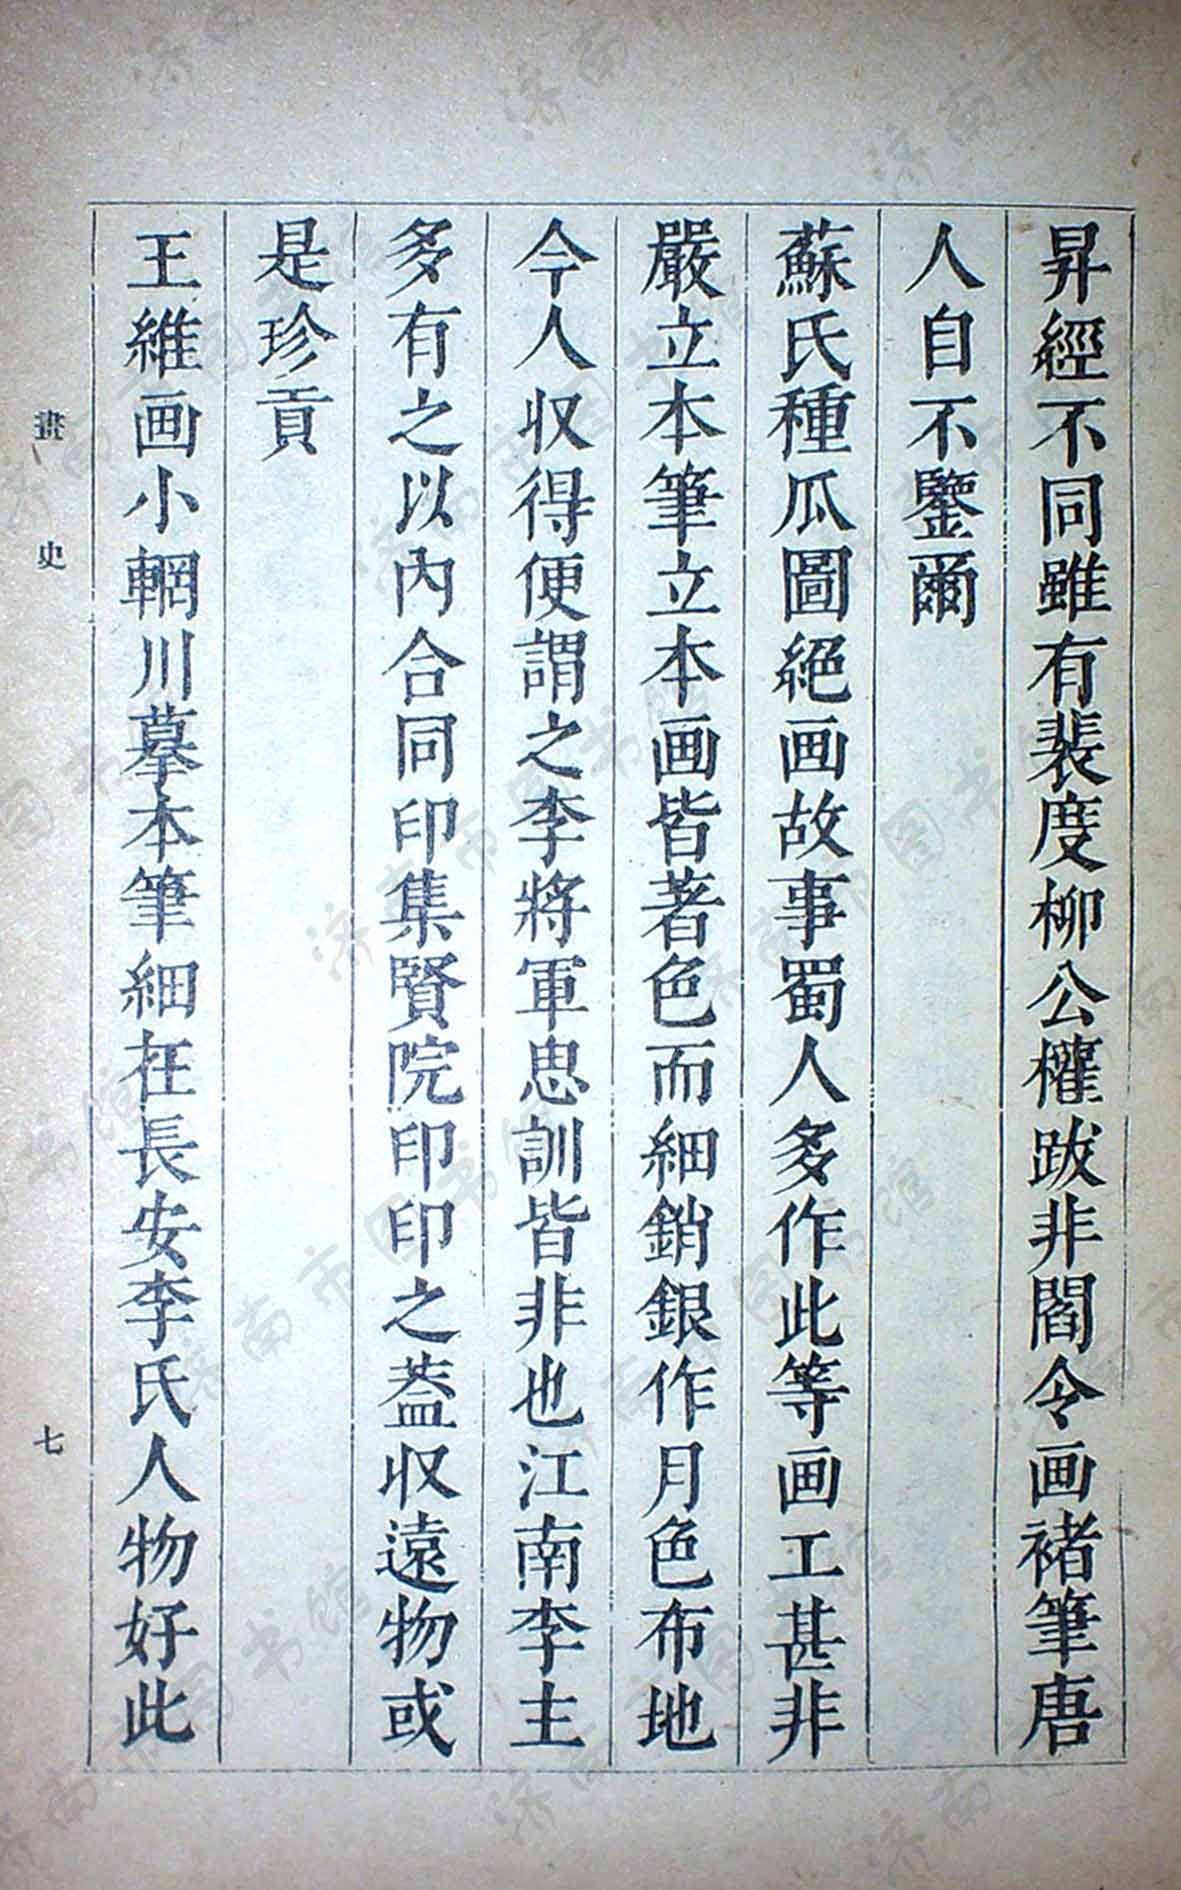 昇經不同雖有裴度柳公權跋非閻令画褚筆唐
人自不鑒爾
蘇氏種瓜圖絕画故事蜀人多作此等画工甚非
嚴立本筆立本画皆著色而細銷銀作月色布地
今人収得便謂之李將軍思訓皆非也江南李主
多有之以內合同印集賢院印印之葢収遠物或
是珍貢
王維画小輞川摹本筆細在長安李氏人物好此
畫史
七
济南市图书馆